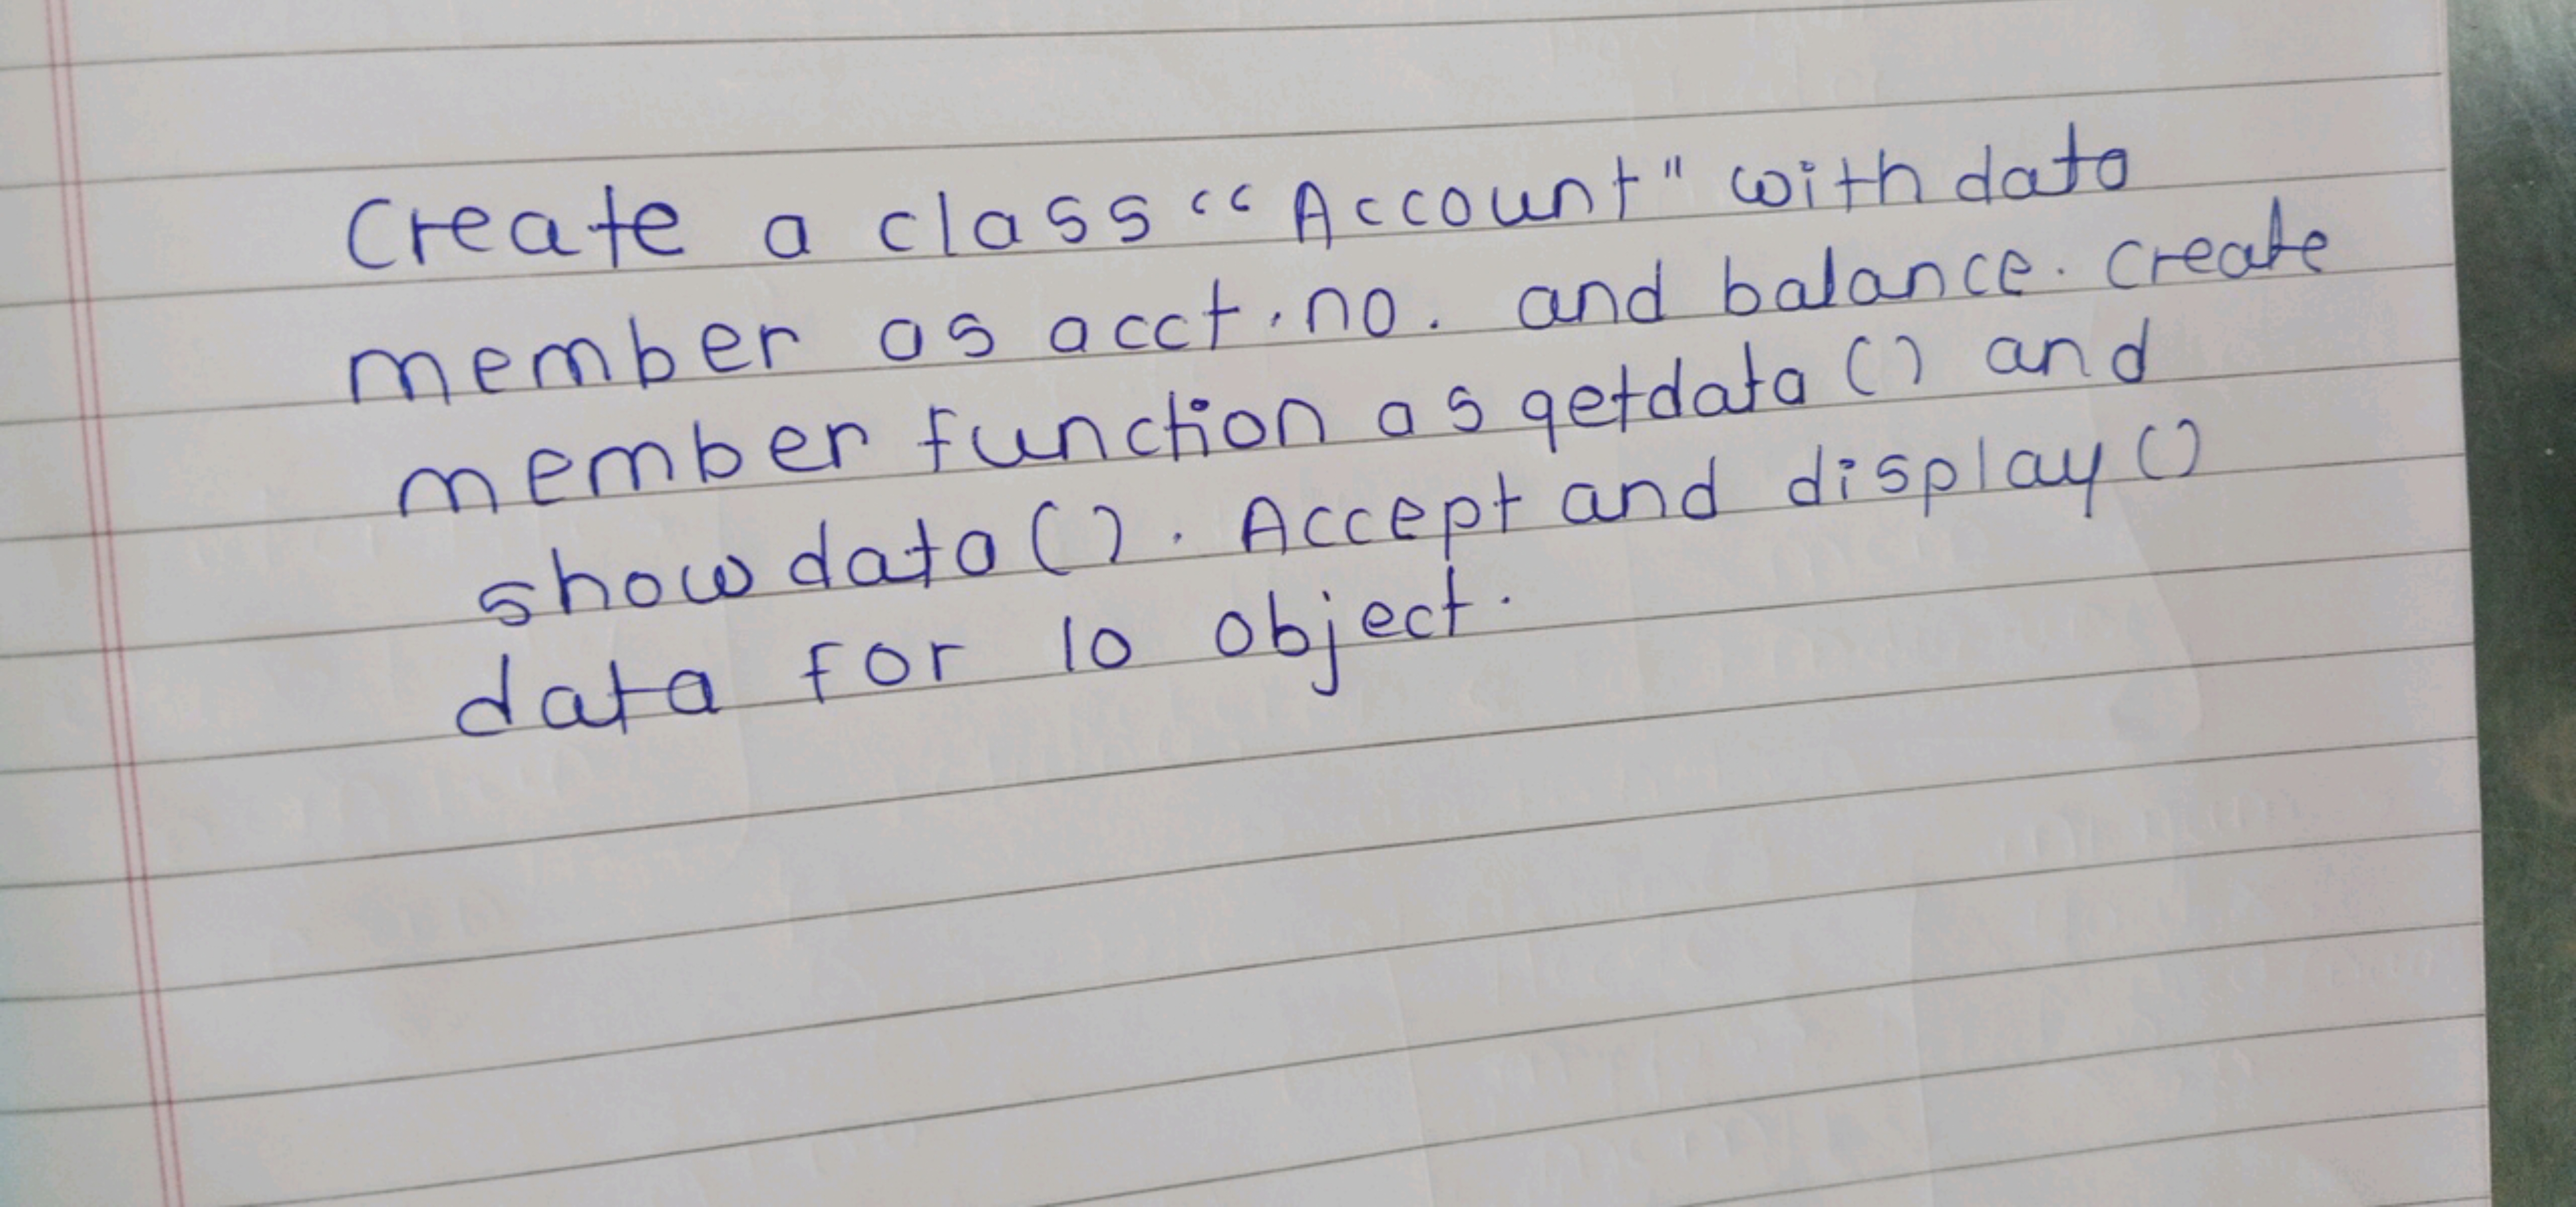 Create a class "Account" with data
member as acct. no. and balance. create
member function as getdata () and
show data (). Accept and display ()
data for 10 object.